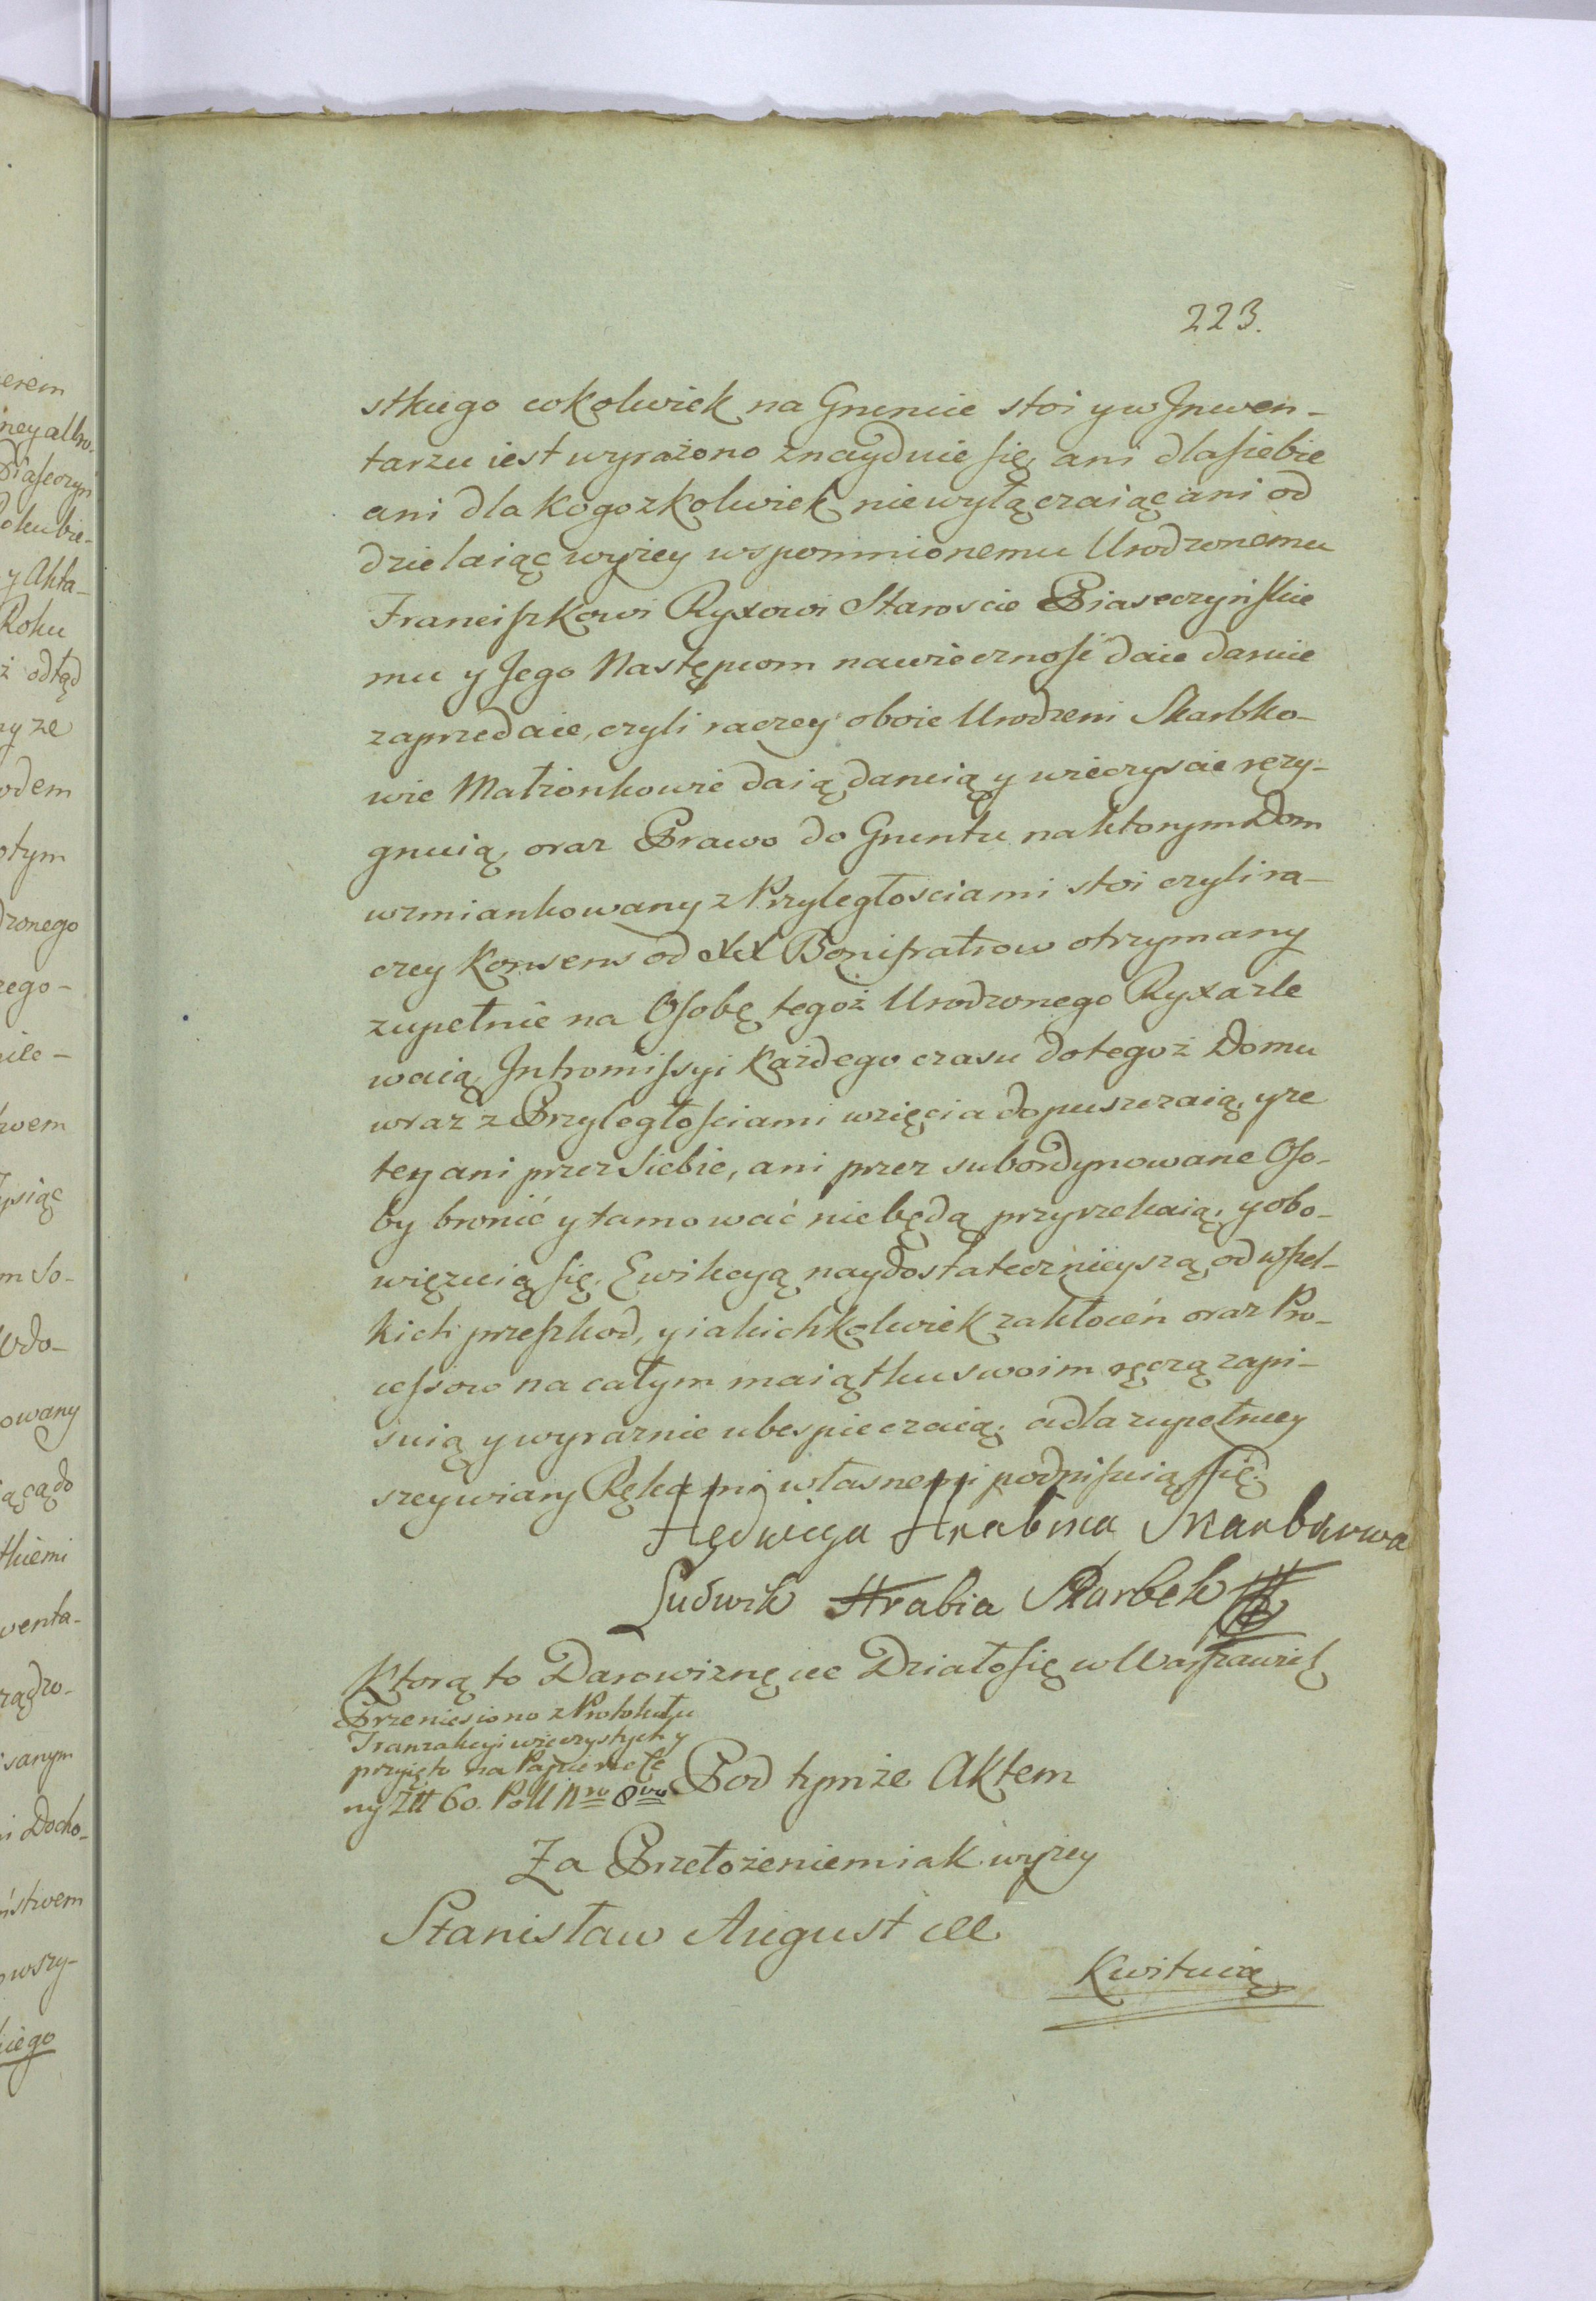 223.
stkiego cokolwiek na Gruncie stoi y w Inwen-
tarzu iest wyrażono znayduie się, ani dla siebie
ani dla kogożkolwiek niewyłączaiąc ani od
dzielaiąc wyżey wspomnionemu Urodzonemu
Franciszkowi Ryxowi Staroscie Piaseczyńskie
mu y Jego Następcom nawieczność daie daruie
zaprzedaie, czyli raczey oboie Urodzeni Skarbko-
wie Małżonkowie daią daruią y wieczyscie rezy-
gnuią, oraz Prawo do Gruntu na ktorym Dom
wzmiankowany z Przyległosciami stoi czyli ra-
czey Konsens od XX Bonifratrow otrzymany
zupełnie na Osobę tegoż Urodzonego Ryxa zle
waią, Intromissyi każdego czasu do tegoż Domu
wraz z Przyległościami wzięcia dopuszczaią, y ze
tey ani przez siebie, ani przez subordynowane Oso-
by bronić y tamować niebędą przyrzekaią, y obo-
więzuią się. Ewikcyą naydostatecznieyszą od wszel-
kich przeszkod, y iakichkolwiek zakłoceń oraz Pro-
cessow na całym maiątku swoim ręczą zapi-
suią y wyraznie ubespieczaią; a dla zupełniey
szey wiary Rękami własnemi podpisuią się.
Hedwiga Hrabina Skarbkowa
Ludwik Hrabia Skarbek
Ktorą to Darowiznę etc Działo się w Warszawie
Przeniesiono z Protokułu
Tranzakcyi wieczystych y
przyięto na Papierze Ce
ny Złt 60. Poll Nro 8vo
Pod tymże Aktem
Za Przełożeniem iak wyżey
Stanisław August etc
Kwituią